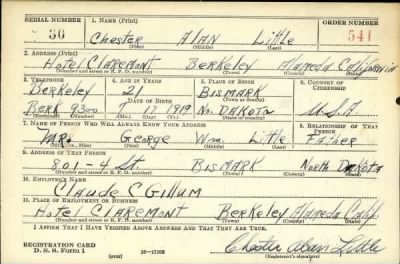 SERIAL NUMBER 1. NAME (Print) ORDER NUMBER
36 Chester Alan Little 541
(First) (Middle) (Last)
2. ADDRESS (Print)
Hotel Claremont Berkeley Alameda California
(Number and street or R. F. D. number) (Town) (County) (State)
3. TELEPHONE 4. AGE IN YEARS 5. PLACE OF BIRTH 6. COUNTRY OF CITIZENSHIP
Berkeley 21 Bismark
DATE OF BIRTH (Town or county)
Berk 9300 7 17 1919 No. Dakota U.S.A
(Exchange) (Number) (Mo.) (Day) (Yr.) (State or country)
7. NAME OF PERSON WHO WILL ALWAYS KNOW YOUR ADDRESS 8. RELATIONSHIP OF THAT PERSON
Mr. George Wm. Little Father
(Mr., Mrs., Miss) (First) (Middle) (Last)
9. ADDRESS OF THAT PERSON
801-4 St Bismark North Dakota
(Number and street or R. F. D. number) (Town) (County) (State)
10. EMPLOYER'S NAME
Claude C Gillum
11. PLACE OF EMPLOYMENT OR BUSINESS
Hotel Claremont Berkeley Alameda Calif
(Number and street or R. F. D. number) (Town) (County) (State)
I AFFIRM THAT I HAVE VERIFIED ABOVE ANSWERS AND THAT THEY ARE TRUE.
REGISTRATION CARD
D. S. S. Form 1 16—17105 Chester Alan Little
(over) (Registrant's signature)